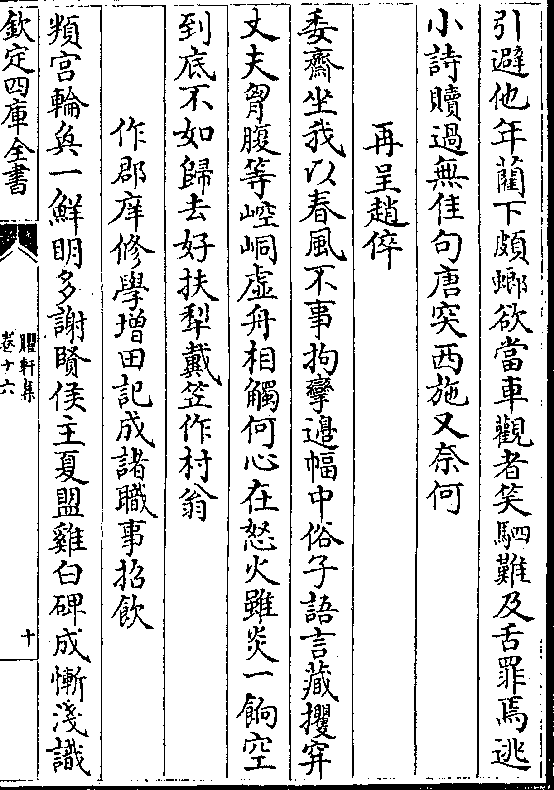 引避他年藺下頗螂欲當車觀者笑駟難及舌罪焉逃
小詩贖過無佳句唐突西施又奈何
再呈趙倅
委齋坐我以春風不事拘攣邉幅中俗子語言藏擭穽
丈夫胷腹等崆峒虚舟相觸何心在怒火雖炎一餉空
到底不如歸去好扶犁戴笠作村翁
作郡庠修學增田記成諸職事招飲
頖宫輪奐一鮮明多謝賢侯主夏盟雞白碑成慚淺識
欽定四庫全書
臞軒集
卷十六
十